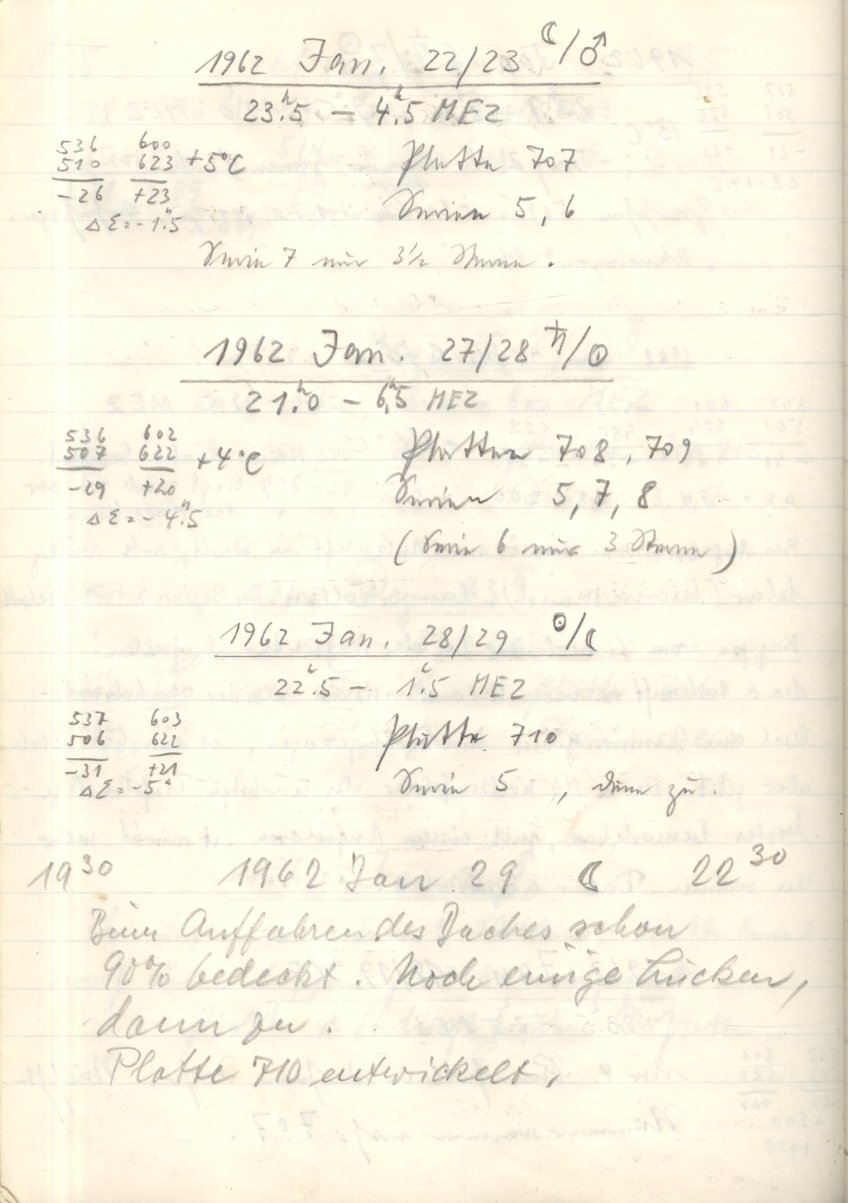 1962 Jan. 22/23 ☾/♂
23.ʰ5 — 4.ʰ5 MEZ
536 600
510 623 +5°C Platte 707
-26 +23
Serien 5, 6
Δ Σ = -1."5
Serie 7 nur 3½ Sterne.
1962 Jan. 27/28 ♄/☉
21.ʰ0 — 6.ʰ5 MEZ
536 602
507 622 +4°C Platten 708, 709
-29 +20
Serien 5, 7, 8
Δ Σ = -4."5
(Serie 6 nur 3 Sterne)
1962 Jan. 28/29 ☉/☾
22.ʰ5 — 1.ʰ5 MEZ
537 603
506 622 Platte 710
-31 +21
Δ Σ = -5" Serie 5, dann zu.
19³⁰ 1962 Jan. 29 ☾ 22³⁰
Beim Auffahren des Daches schon
90% bedeckt. Noch einige Lücken,
dann zu.
Platte 710 entwickelt.